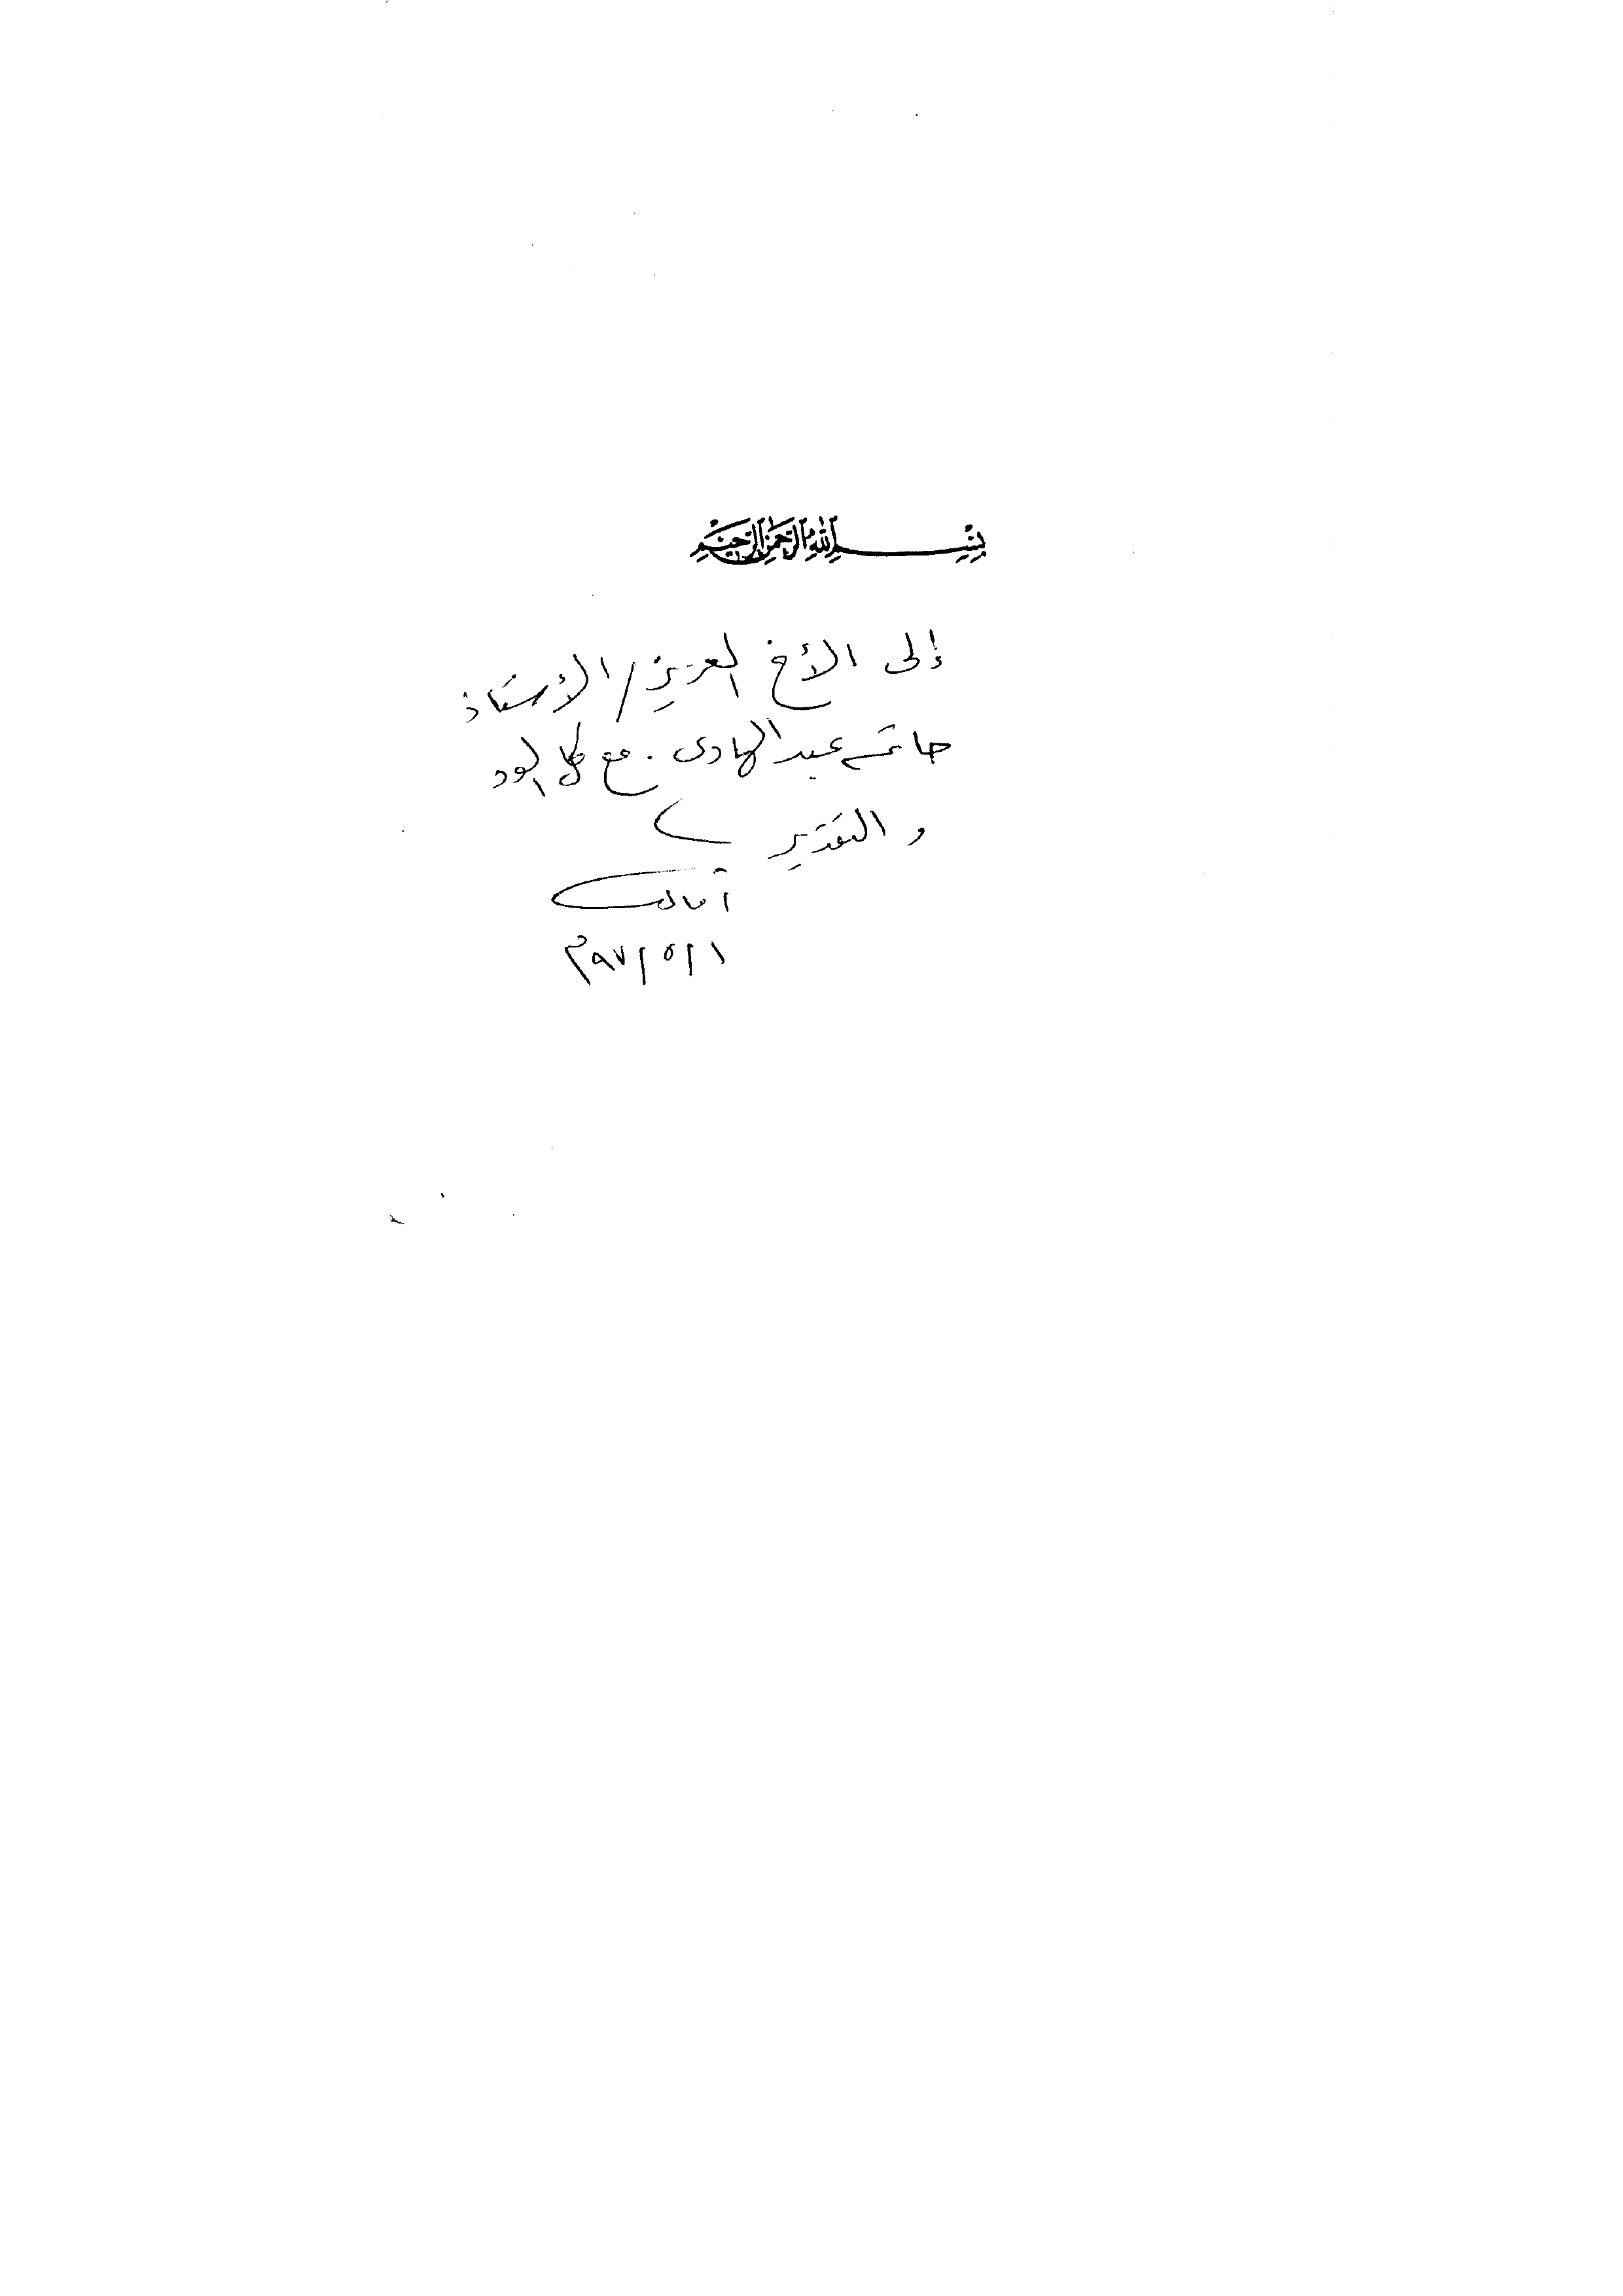 بِسْمِ اللَّهِ الرَّحْمَنِ الرَّحِيمِ
إلى الأخ العزيز / الأستاذ
حاتم عبد الهادى . مع كل الود
و التقدير
١ / ٥ / ٩٧م